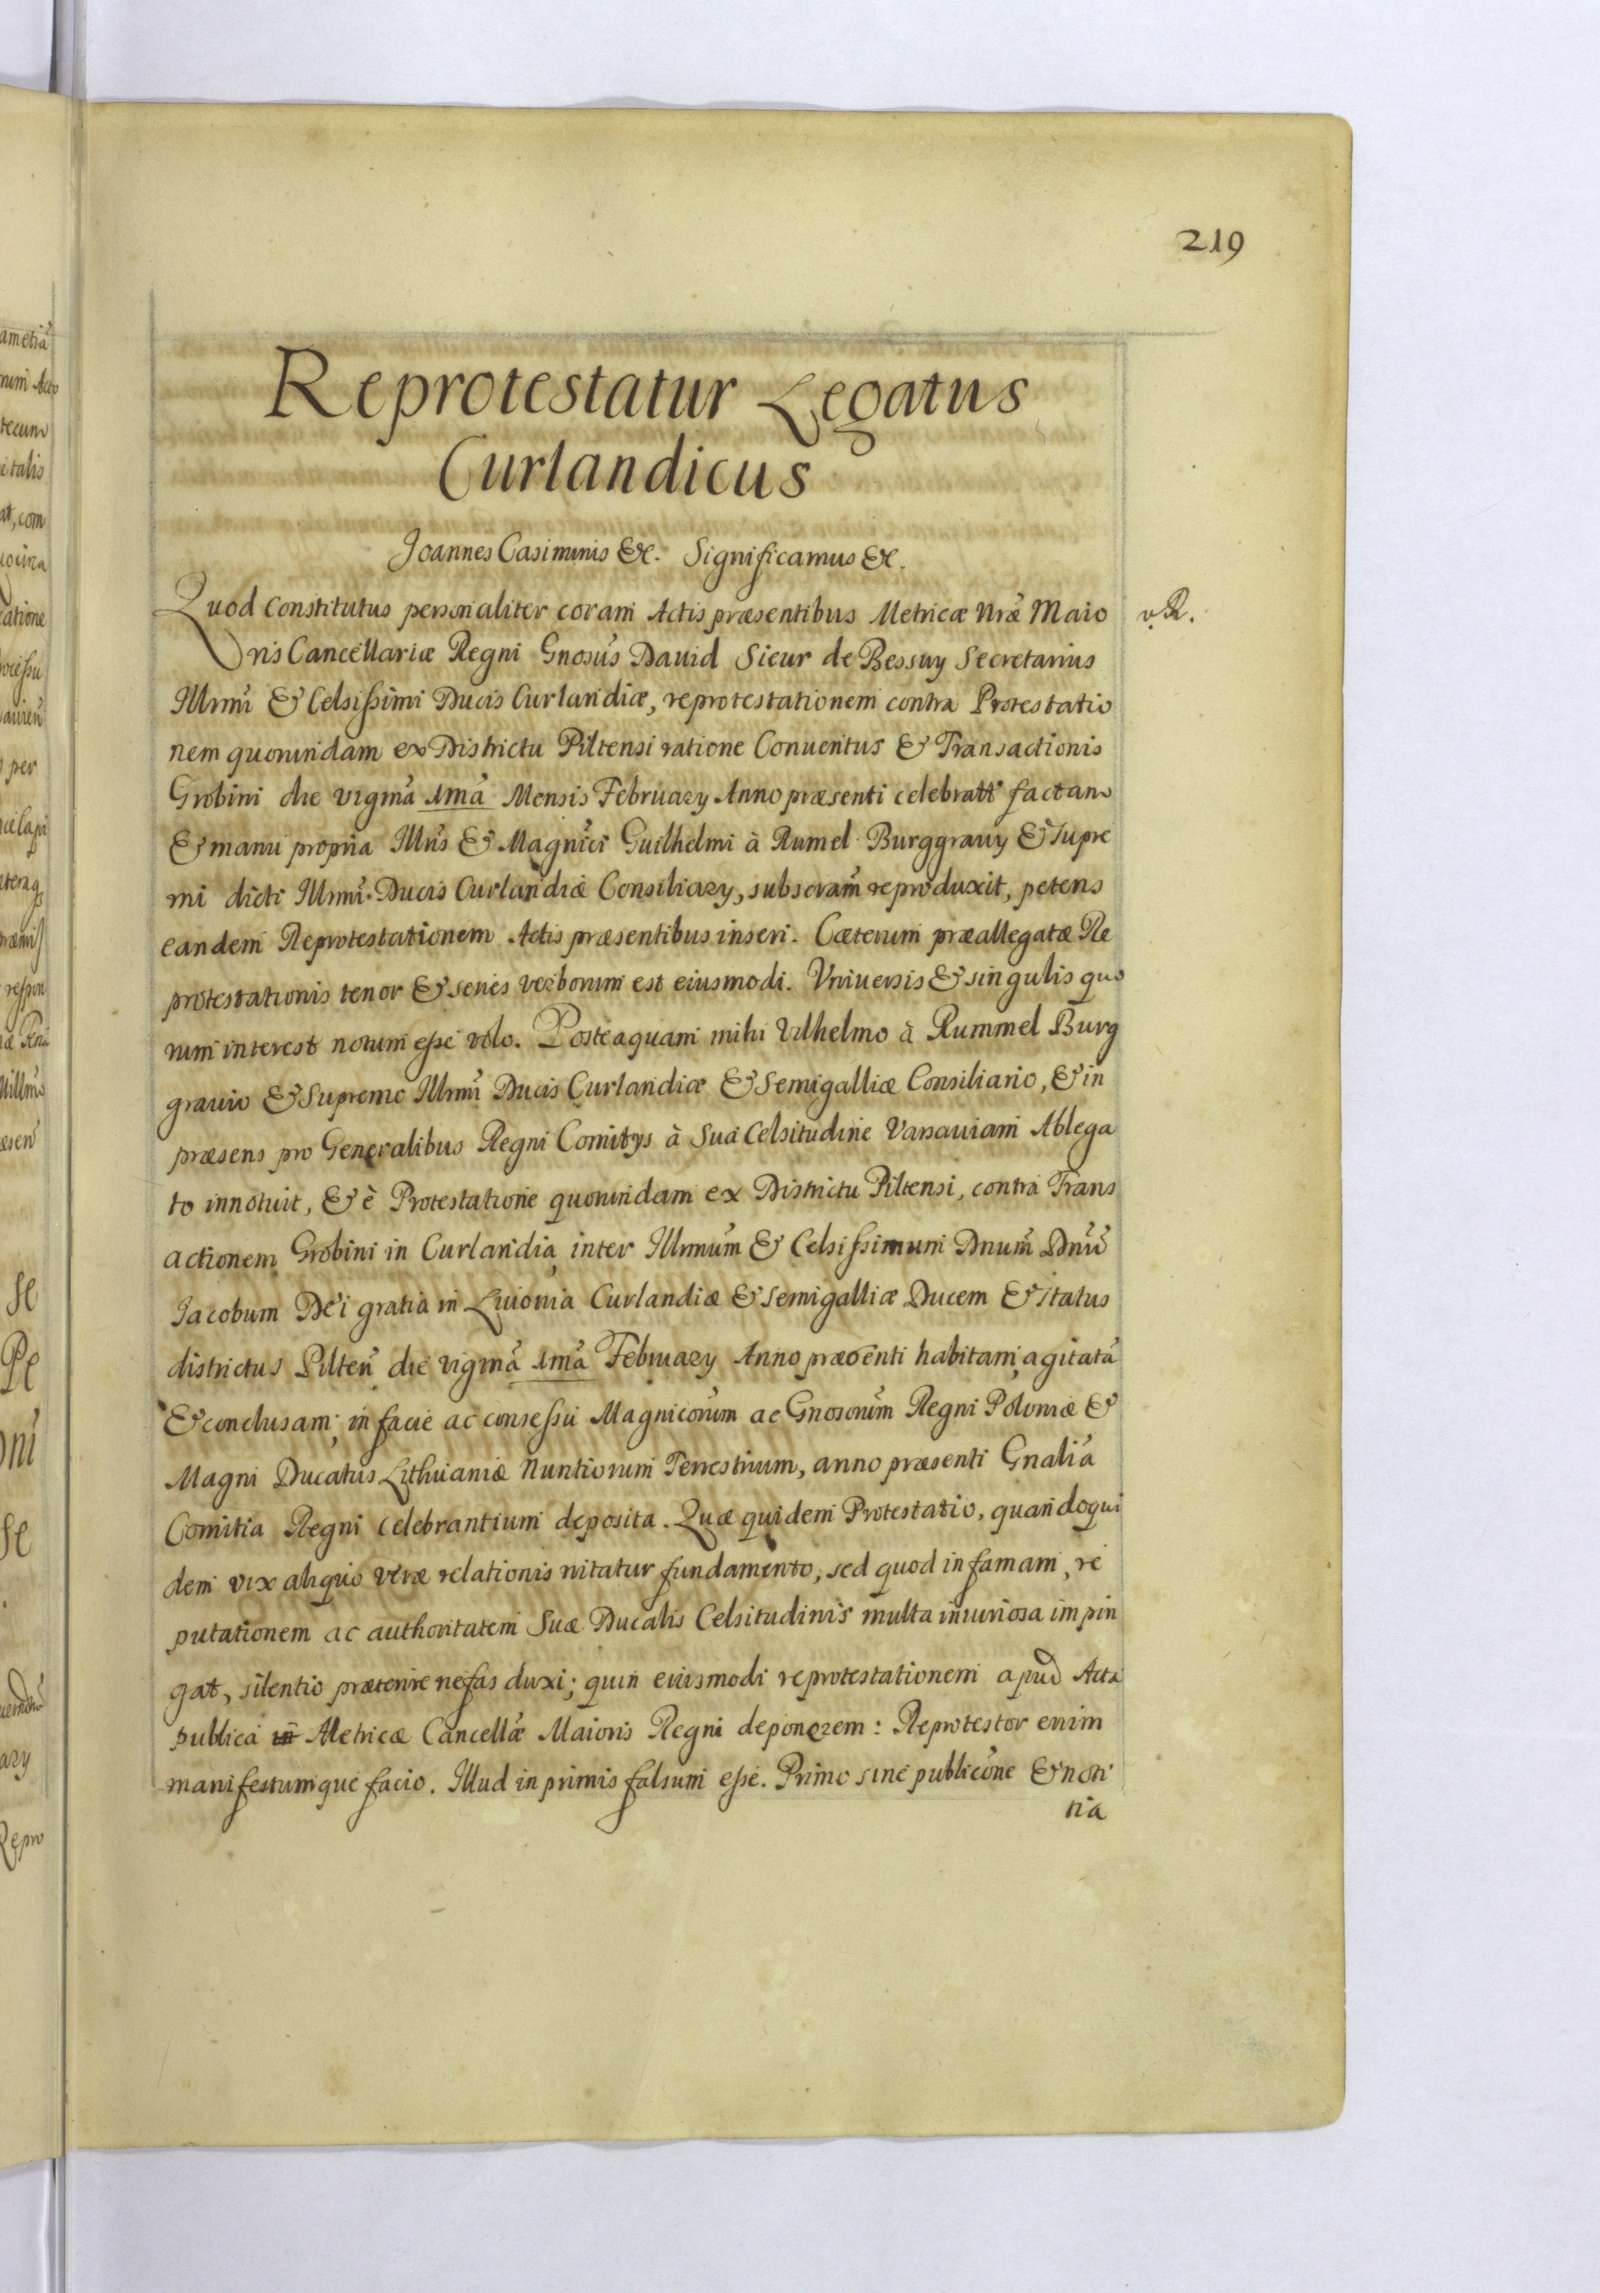 219
Reprotestatur Legatus
Curlandicus
Joannes Casimirus &c. Significamus &c.
Quod Constitutus personaliter coram Actis præsentibus Metricæ Nræ Maio
ris Cancellariæ Regni Gnosus Dauid Sieur de Bessuy Secretarius
Illmi & Celsissimi Ducis Curlandiæ, reprotestationem contra Protestatio
nem quorundam ex Districtu Piltensi ratione Conuentus & Transactionis
Grobini die vigmâ 1mâ Mensis February Anno præsenti celebratt factam
& manu propria Illris & Magnifici Guilhelmi à Rumel Burggrauy & Supre
mi dicti Illmi Ducis Curlandiæ Consiliary, subscram reproduxit, petens
eandem Reprotestationem Actis præsentibus inseri. Cæterum præallegatæ Re
protestationis tenor & series verborum est eiusmodi. Vniuersis & singulis quo
rum interest notum esse volo. Posteaquam mihi Vilhelmo à Rummel Burg
grauio & Supremo Illmi Ducis Curlandiæ & Semigalliæ Consiliario, & in
præsens pro Generalibus Regni Comitys à Sua Celsitudine Varsauiam Ablega
to innotuit, & è Protestatione quorundam ex Districtu Piltensi, contra Trans
actionem Grobini in Curlandia, inter Illmum & Celsissimum Dnum Dnum
Jacobum Dei gratia in Liuonia Curlandiæ & Semigalliæ Ducem & Status
districtus Pilten die vigmâ 1mâ February Anno præsenti habitam, agitatâ
& conclusam; in facie ac consessu Magnicorum ac Gnosorum Regni Poloniæ &
Magni Ducatus Lithuaniæ Nuntiorum Terrestrium, anno præsenti Gnalia
Comitia Regni celebrantium deposita. Quæ quidem Protestatio, quandoqui
dem vix aliquo veræ relationis nitatur fundamento, sed quod in famam, re
putationem ac authoritatem Suæ Ducalis Celsitudinis multa iniuriosa impin
gat, silentio præterire nefas duxi; quin eiusmodi reprotestationem apud Acta
publica Metricæ Cancellæ Maioris Regni deponerem: Reprotestor enim
manifestumque facio. Illud in primis falsum esse. Primo sine publicone & noti
tia